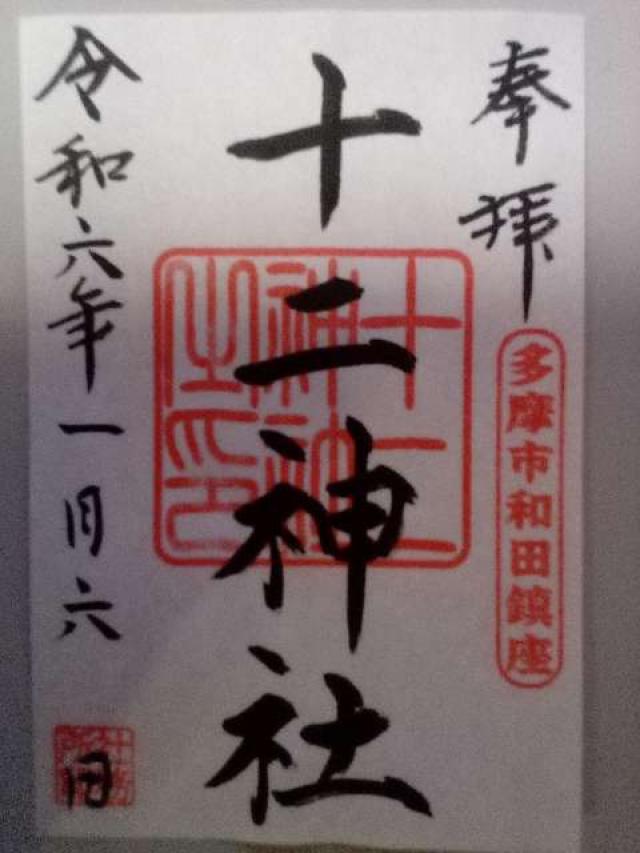 奉拝
多摩市和田鎮座
十二神社
十二神社之印
令和六年一月六日
社務所